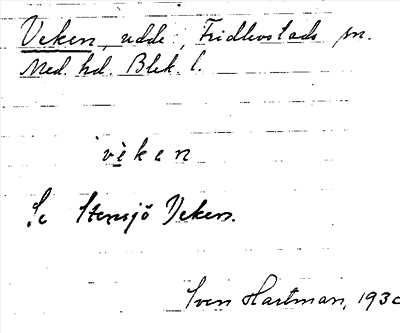 Veken, udde, Fridlevstads sn.
Med. hd. Blek. l.
vèken
Se Stensjö Veken.
Sven Hartman, 1930